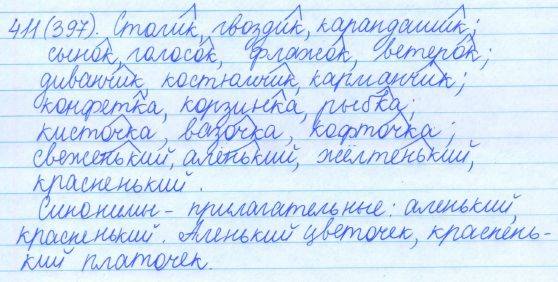 411(397). Столик, гвоздик, карандашик;
сынок, голосок, флажок, ветерок;
диванчик, костюмчик, карманчик;
конфетка, корзинка, рыбка;
кисточка, вазочка, кофточка;
свеженький, аленький, жёлтенький,
красненький.
Синонимы – прилагательные: аленький,
красненький. Аленький цветочек, краснень-
кий платочек.